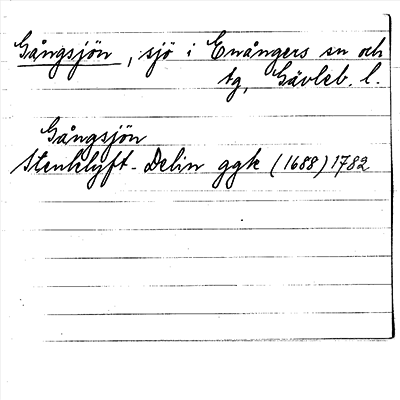 Gångsjön, sjö i Enångers sn och
tg, Gävleb. l.
Gångsjön
Stenklyft-Delin ggk (1688) 1782